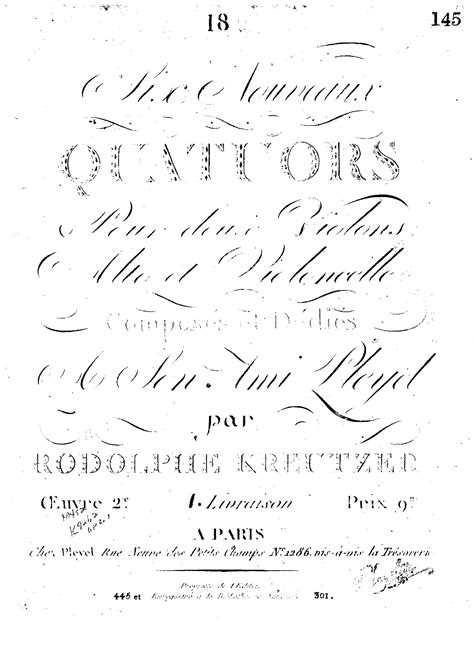 18
145
Six Nouveaux
QUATUORS
Pour deux Violons
Alto et Violoncelle
Composés et Dédiés
A Son Ami Pleyel
par
RODOLPHE KREUTZER
Œuvre 2e
1. Livraison
Prix 9#
A PARIS
Chez Pleyel Rue Neuve des Petits Champs No. 1286. vis-à-vis la Trésorerie
Propriété de l'Editeur
445 et Enregistrée à la Bibliothèque 301.